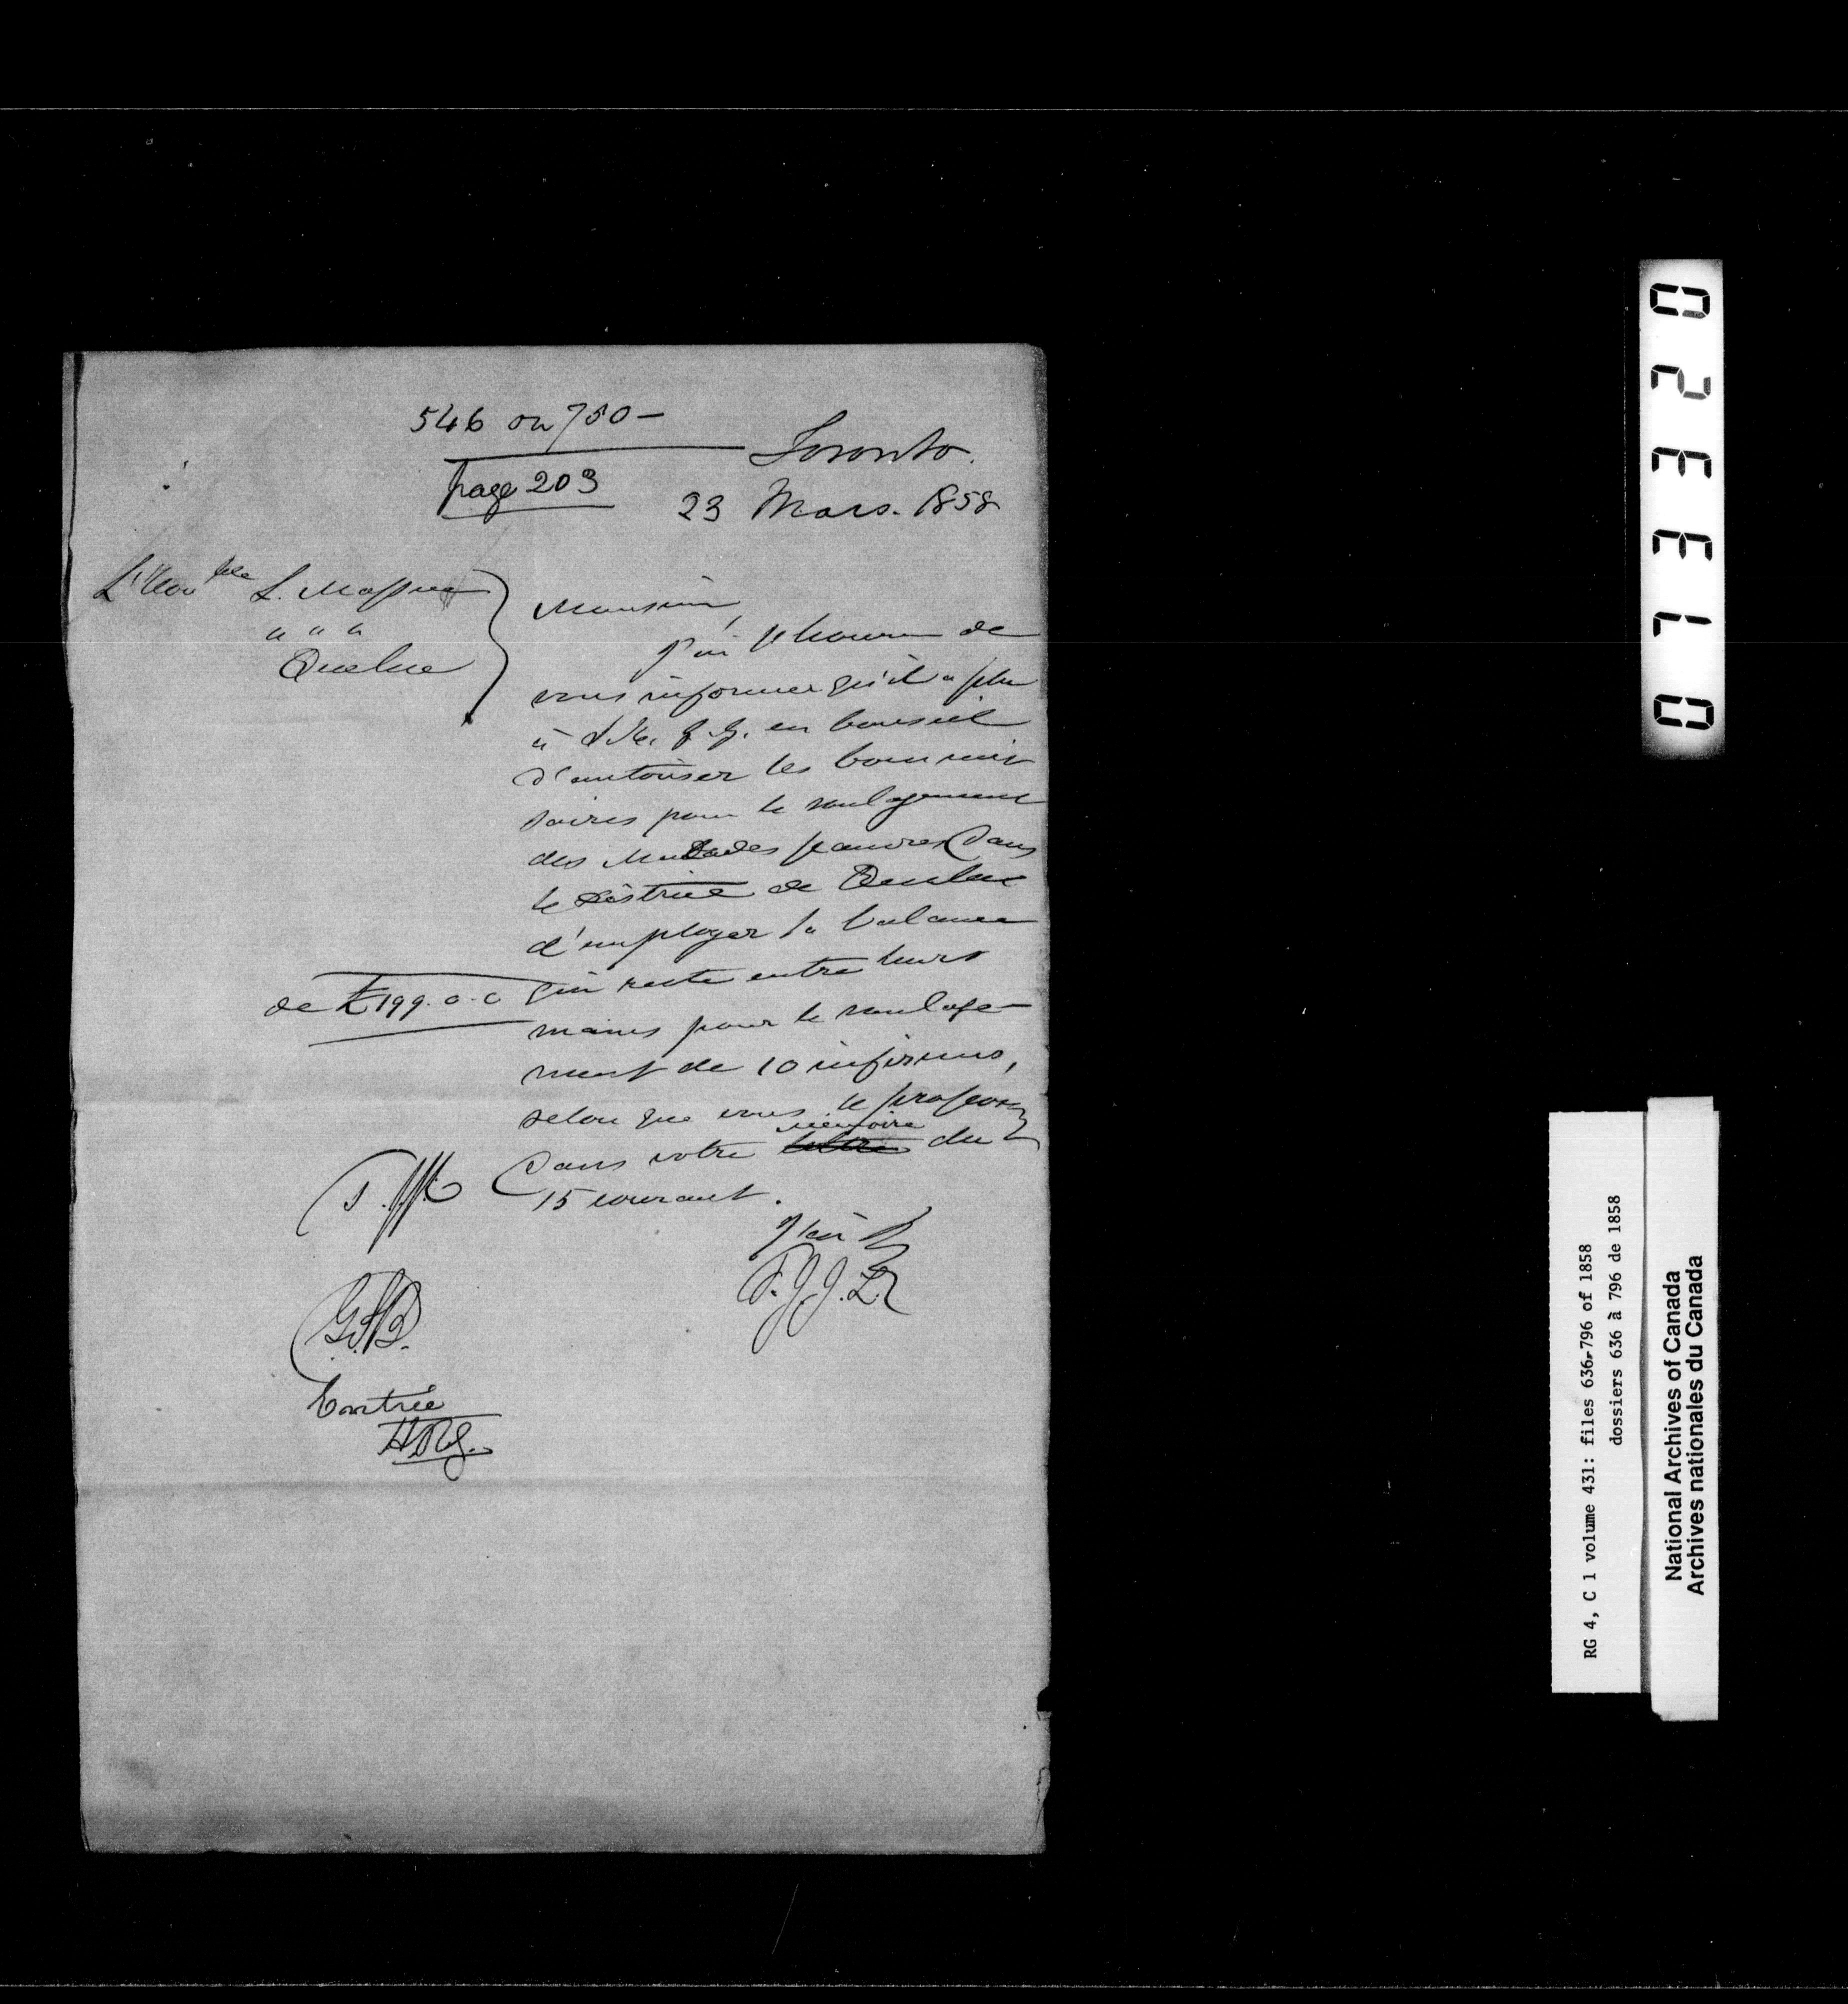 546 on 750 -
page 203
Toronto.
23 Mars. 1858
L'Hon'ble L. Massue
" " "
Quebec
Monsieur,
J'ai l'honneur de
vous informer qu'il a plu
à S. E. G. G. en Conseil
d'autoriser les Commis
saires pour le soulagement
des Malades pauvres dans
le District de Quebec
d'employer la balance
de £199. 0. 0 qui reste entre leurs
mains pour le soulage-
ment de 10 infirmes,
selon que vous le proposez
mémoire
dans votre lettre du
15 courant.
J'ai
T. J. J. L.
Entrée
0 7 3 3 2 0
RG 4, C 1 volume 431: files 636-796 of 1858
dossiers 636 à 796 de 1858
National Archives of Canada
Archives nationales du Canada